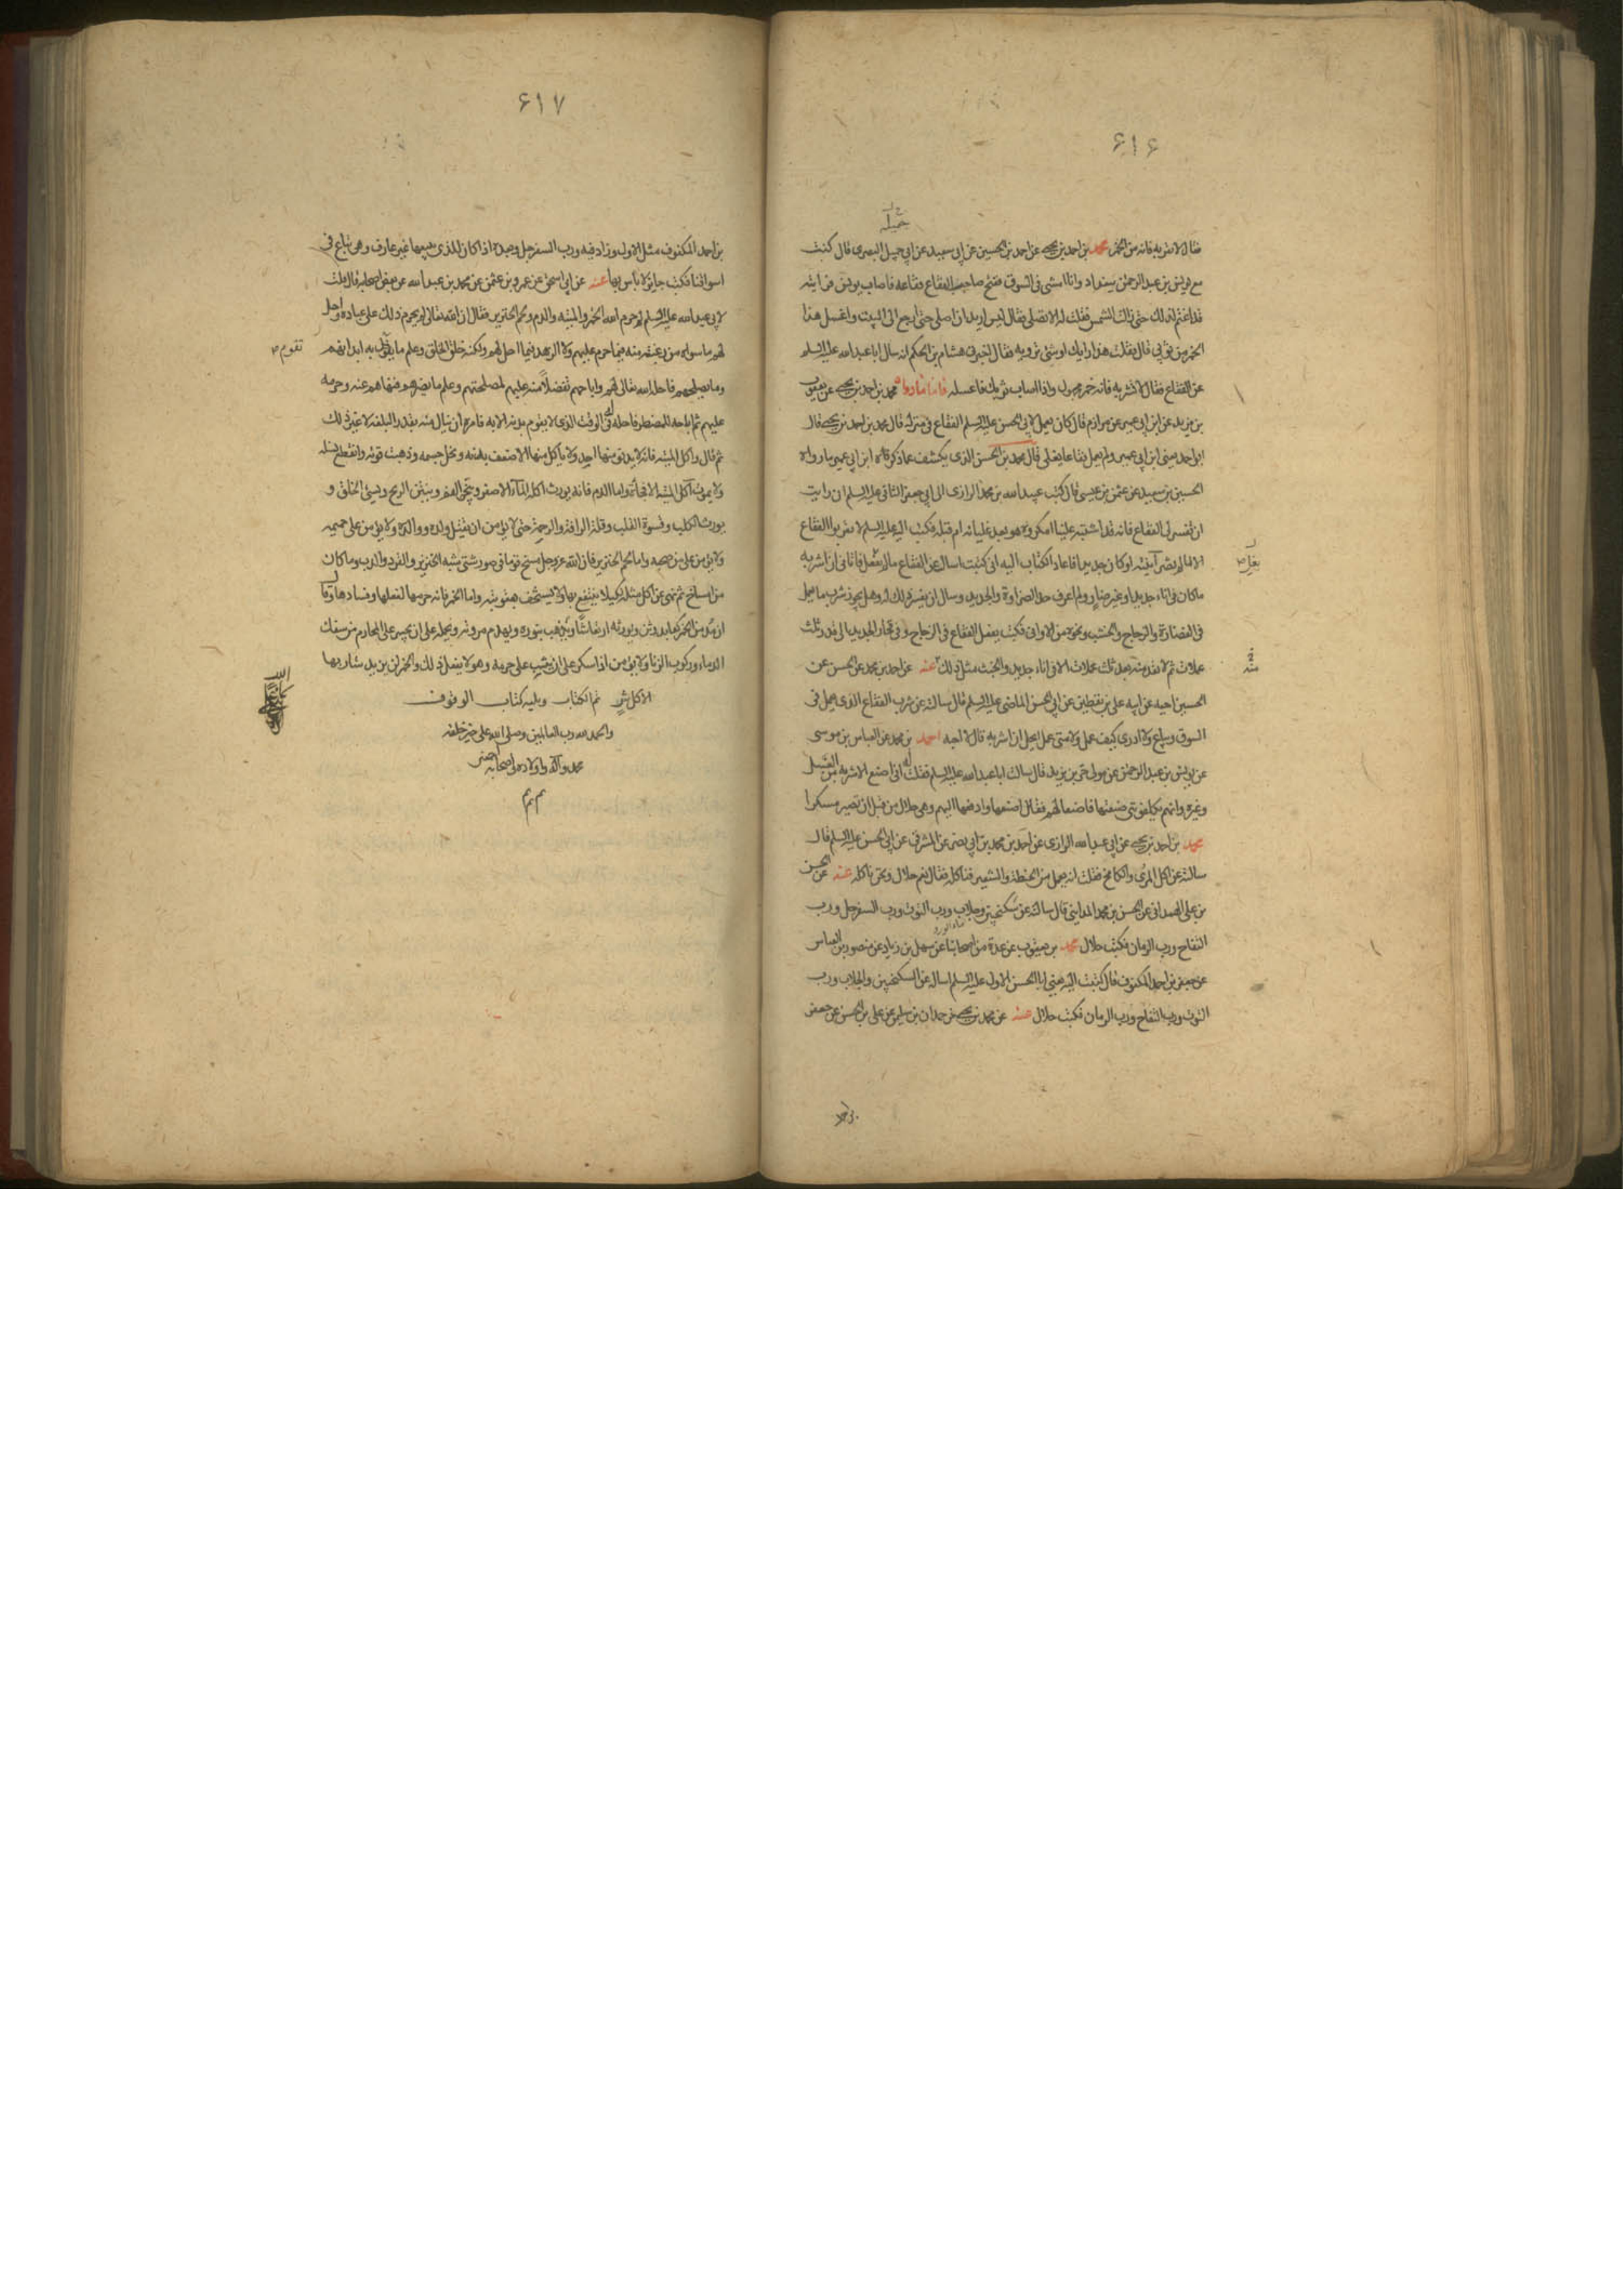 ۶۱۶
جميلة
فقال لا تشربه فانه من الخمر محمد بن احمد بن يحيى عن احمد بن الحسين عن ابي سعيد عن ابي جميل البصرى قال كنت
مع يونس بن عبد الرحمن ببغداد وانا امشى فى السوق ففتح صاحب الفقاع فقاعه فاصاب يونس فرايته
قد اغتم لذلك حتى زالت الشمس فقلت له الا تصلى فقال ليس اريد ان اصلى حتى ارجع الى البيت واغسل هذا
الخمر من ثوبى قال فقلت هذا رايك او شئ ترويه فقال اخبرنى هشام بن الحكم انه سال ابا عبد الله عليه السلم
عن الفقاع فقال لا تشربه فانه خمر مجهول واذا اصاب ثوبك فاغسله فاما ما رواه محمد بن احمد بن يحيى عن يعقوب
بن يزيد عن ابن ابي عمير عن مرازم قال كان يعمل لابي الحسن عليه السلم الفقاع فى منزله قال محمد بن احمد بن يحيى قال
ابو احمد يعنى ابن ابي عمير ولم يعمل فقاعا يغلى قال محمد بن الحسن الذى يكشف عما ذكره ابن ابي عمير ما رواه
الحسين بن سعيد عن عثمن بن عيسى قال كتب عبيد الله بن محمد الرازى الى ابي جعفر الثانى عليه السلم ان رايت
ان تفسر لى الفقاع فانه قد اشتبه علينا امكروه هو بعد غليانه ام قبله فكتب اليه عليه السلم لا تقربوا الفقاع
الا ما لم يضر آنيته او كان جديدا فاعاد الكتاب اليه انى كتبت اسال عن الفقاع ما لم يغل فاتانى ان اشربه
ما كان فى اناء جديد او غير ضار ولم اعرف حد الضراوة والجديد وسال ان يفسر ذلك له وهل يجوز شرب ما يعمل
فى الغضارة والزجاج والخشب ونحوه من الاوانى فكتب يفعل الفقاع فى الزجاج وفى الفخار الجديد الى قدر ثلث
عملات ثم لا تعد منه بعد ثلث عملات الا فى اناء جديد والخشب مثل ذلك عنه عن احمد بن محمد عن الحسن عن
الحسين اخيه عن ابيه على بن يقطين عن ابي الحسن الماضى عليه السلم قال سالته عن شرب الفقاع الذى يعمل فى
السوق ويباع ولا ادرى كيف عمل ولا متى عمل ايحل ان اشربه قال لا احبه احمد بن محمد عن العباس بن موسى
عن يونس بن عبد الرحمن عن مولى حر بن يزيد قال سالت ابا عبد الله عليه السلم فقلت له انى اصنع الاشربة من العسل
وغيره وانهم يكلفونى صنعتها فاصنعها لهم فقال اصنعها وادفعها اليهم وهى حلال من قبل ان تصير مسكرا
محمد بن احمد بن يحيى عن ابي عبد الله الرازى عن احمد بن محمد بن ابي نصر عن المشرقى عن ابي الحسن عليه السلم قال
سالته عن اكل المرى والكامخ فقلت انه يعمل من الحنطة والشعير فناكله فقال نعم حلال ونحن ناكله عنه عن الحسن
بن على الهمدانى عن الحسن بن محمد المداينى قال سالته عن سكنجبين وجلاب ورب التوت ورب السفرجل ورب
التفاح ورب الرمان فكتب حلال محمد بن يعقوب عن عدة من اصحابنا عن سهل بن زياد عن منصور بن العباس
عن جعفر بن احمد المكفوف قال كتبت اليه يعنى ابا الحسن الاول عليه السلم اساله عن السكنجبين والجلاب ورب
التوت ورب التفاح ورب الرمان فكتب حلال عنه عن محمد بن يحيى عن حمدان بن سليمن عن على بن الحسن عن جعفر
يغل
منه
بن احمد
۶۱۷
بن احمد المكفوف مثل الاول وزاد فيه ورب السفرجل وبعده اذا كان الذى يبيعها غير عارف وهى تباع فى
اسواقنا فكتب جايز لا بأس بها عنه عن ابي اسحق عن عمرو بن عثمن عن محمد بن عبد الله عن بعض اصحابه قال قلت
لابي عبد الله عليه السلم لم حرم الله الخمر والميتة والدم ولحم الخنزير فقال ان الله تعالى لم يحرم ذلك على عباده واحل
لهم ما سواه من رغبة منه فيما حرم عليهم ولا لزهد فيما احل لهم ولكنه خلق الخلق وعلم ما يقوم به ابدانهم
وما يصلحهم فاحله الله تعالى لهم واباحهم تفضلا منه عليهم لمصلحتهم وعلم ما يضرهم فنهاهم عنه وحرمه
عليهم ثم اباحه للمضطر فاحله له فى الوقت الذى لا يقوم بدنه الا به فامره ان ينال منه بقدر البلغة لا غير ذلك
ثم قال واكل الميتة فانه لا يدنو منها احد ولا ياكل منها الا ضعف بدنه ونحل جسمه وذهبت قوته وانقطع نسله
ولا يموت آكل الميتة الا فجأة واما الدم فانه يورث اكله المآء الاصفر ويبخر الفم وينتن الريح ويسئ الخلق و
يورث الكلب وقسوة القلب وقلة الرافة والرحمة حتى لا يؤمن ان يقتل ولده ووالديه ولا يؤمن على حميمه
ولا يؤمن على من صحبه واما لحم الخنزير فان الله عز وجل مسخ قوما فى صور شتى شبه الخنزير والقرد والدب وما كان
من امساخ ثم نهى عن اكل مثله لكيلا ينتفع بها ولا يستخف بعقوبته واما الخمر فانه حرمها لفعلها وفسادها وقال
ان مدمن الخمر كعابد وثن ويورثه ارتعاشا ويذهب بنوره ويهدم مروته ويحمله على ان يجسر على المحارم من سفك
الدماء وركوب الزنا ولا يؤمن اذا سكر على ان يثب على حرمه وهو لا يعقل ذلك والخمر لن يزيد شاربها
الا كل شر تم الكتاب ويليه كتاب الوقوف
والحمد لله رب العالمين وصلى الله على خير خلقه
محمد وآله واولاده واصحابه
م م م
تقوم